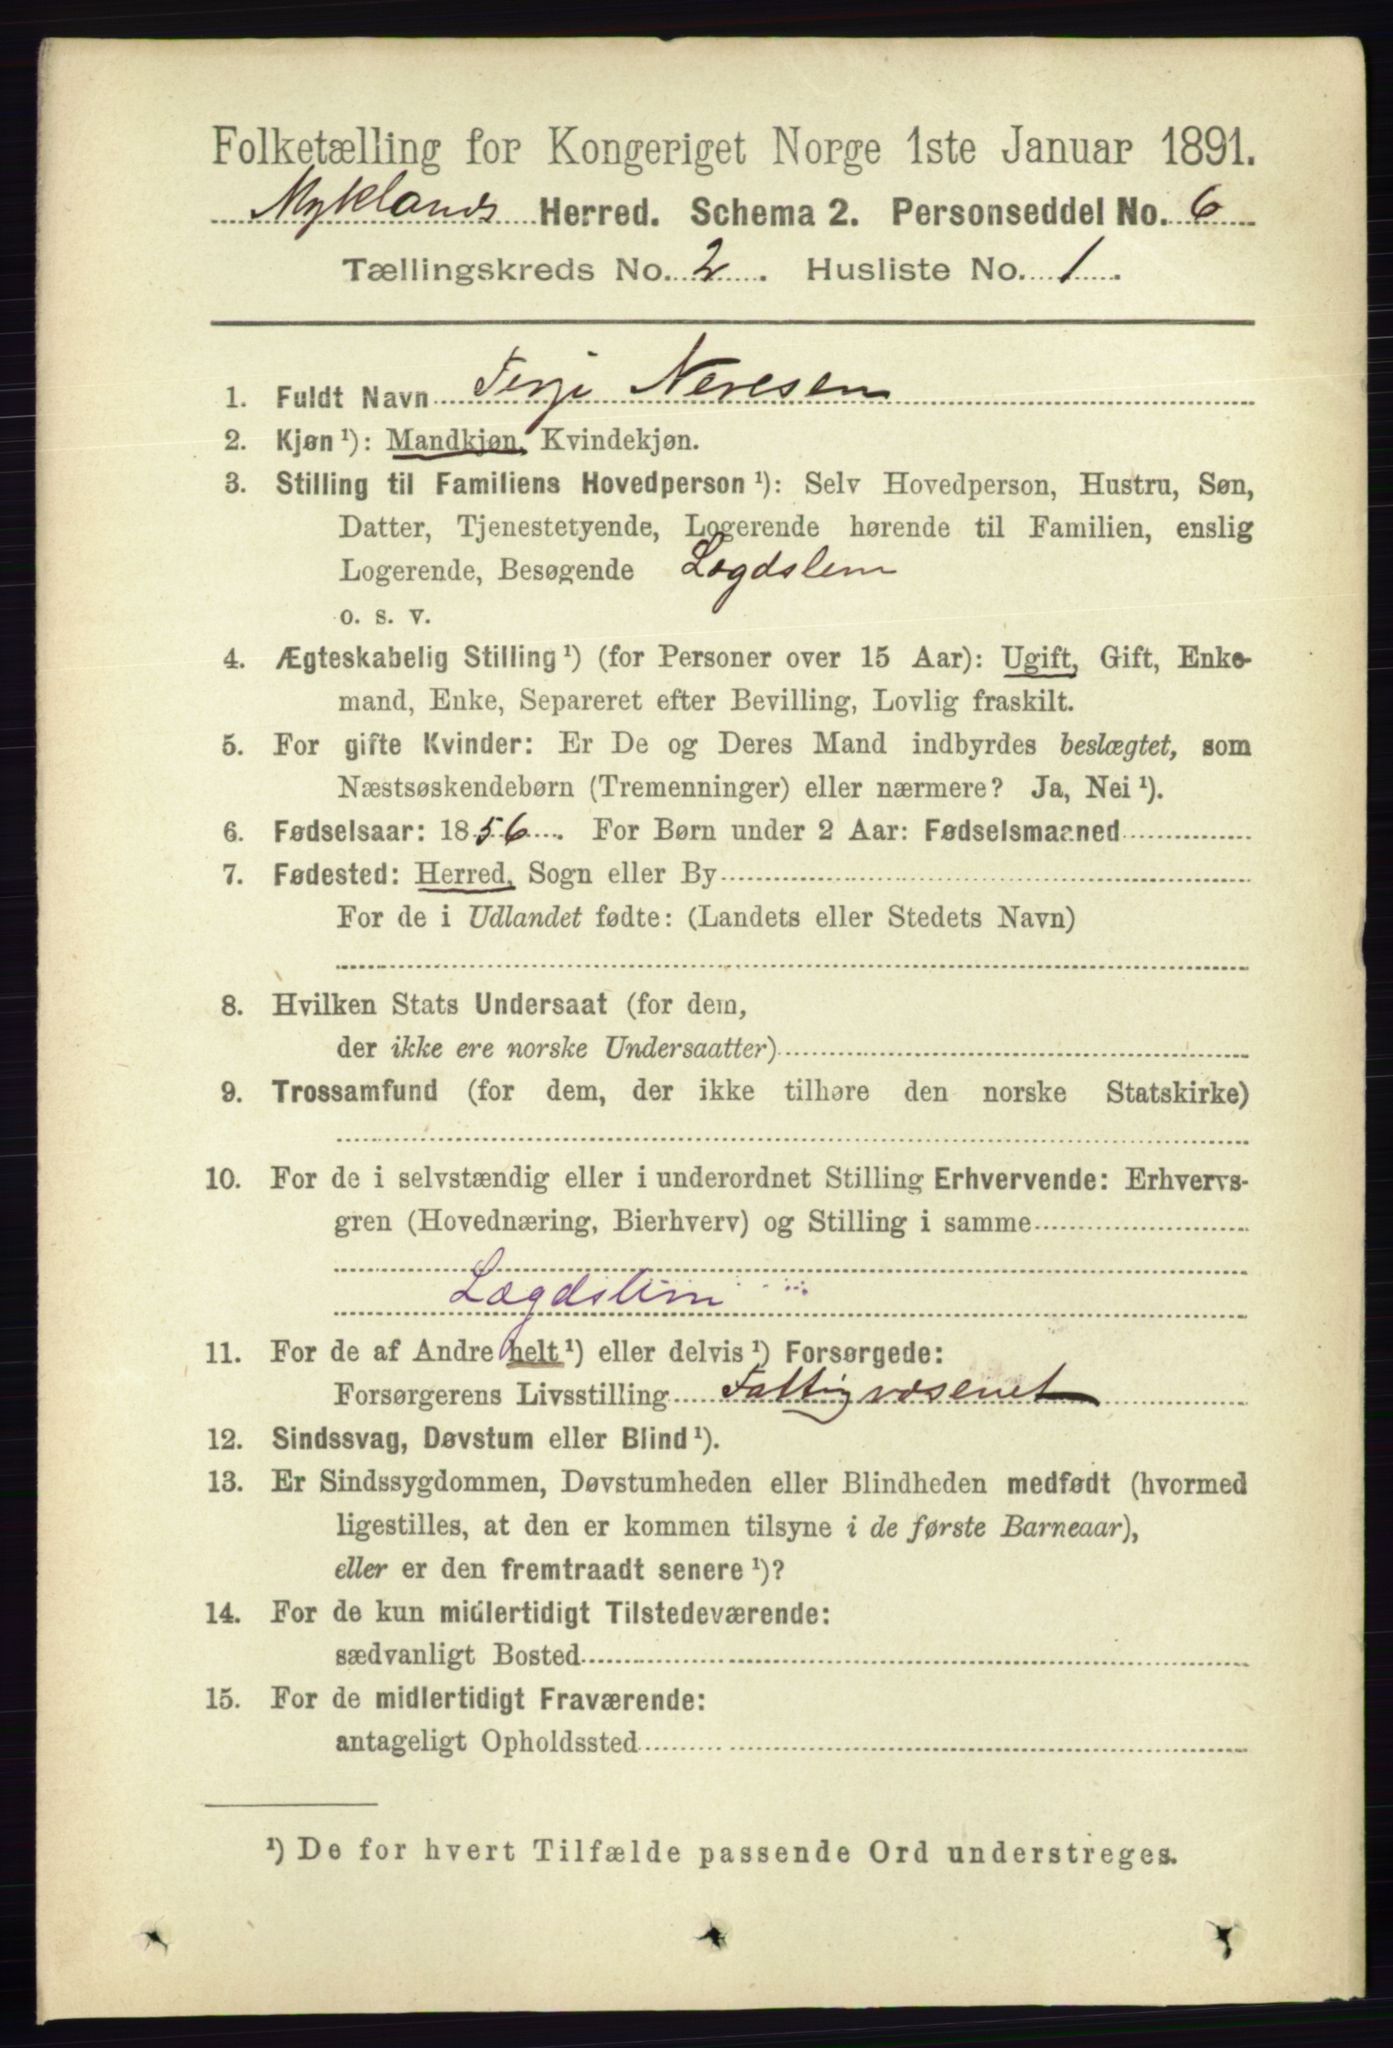 Folketælling for Kongeriget Norge 1ste Januar 1891.
Myklands Herred. Schema 2. Personseddel No. 6
Tællingskreds No. 2. Husliste No. 1.
1. Fuldt Navn Terje Neresen
2. Kjøn ¹): Mandkjøn, Kvindekjøn.
3. Stilling til Familiens Hovedperson ¹): Selv Hovedperson, Hustru, Søn,
Datter, Tjenestetyende, Logerende hørende til Familien, enslig
Logerende, Besøgende Lægdslem
o. s. v.
4. Ægteskabelig Stilling ¹) (for Personer over 15 Aar): Ugift, Gift, Enke-
mand, Enke, Separeret efter Bevilling, Lovlig fraskilt.
5. For gifte Kvinder: Er De og Deres Mand indbyrdes beslægtet, som
Næstsøskendebørn (Tremenninger) eller nærmere? Ja, Nei ¹).
6. Fødselsaar: 1856. For Børn under 2 Aar: Fødselsmaaned
7. Fødested: Herred, Sogn eller By
For de i Udlandet fødte: (Landets eller Stedets Navn)
8. Hvilken Stats Undersaat (for dem,
der ikke ere norske Undersaatter)
9. Trossamfund (for dem, der ikke tilhøre den norske Statskirke)
10. For de i selvstændig eller i underordnet Stilling Erhvervende: Erhvervs-
gren (Hovednæring, Bierhverv) og Stilling i samme
Lægdslem
11. For de af Andre helt ¹) eller delvis ¹) Forsørgede:
Forsørgerens Livsstilling Fattigvæsenet
12. Sindssvag, Døvstum eller Blind ¹).
13. Er Sindssygdommen, Døvstumheden eller Blindheden medfødt (hvormed
ligestilles, at den er kommen tilsyne i de første Barneaar),
eller er den fremtraadt senere ¹)?
14. For de kun midlertidigt Tilstedeværende:
sædvanligt Bosted
15. For de midlertidigt Fraværende:
antageligt Opholdssted
¹) De for hvert Tilfælde passende Ord understreges.